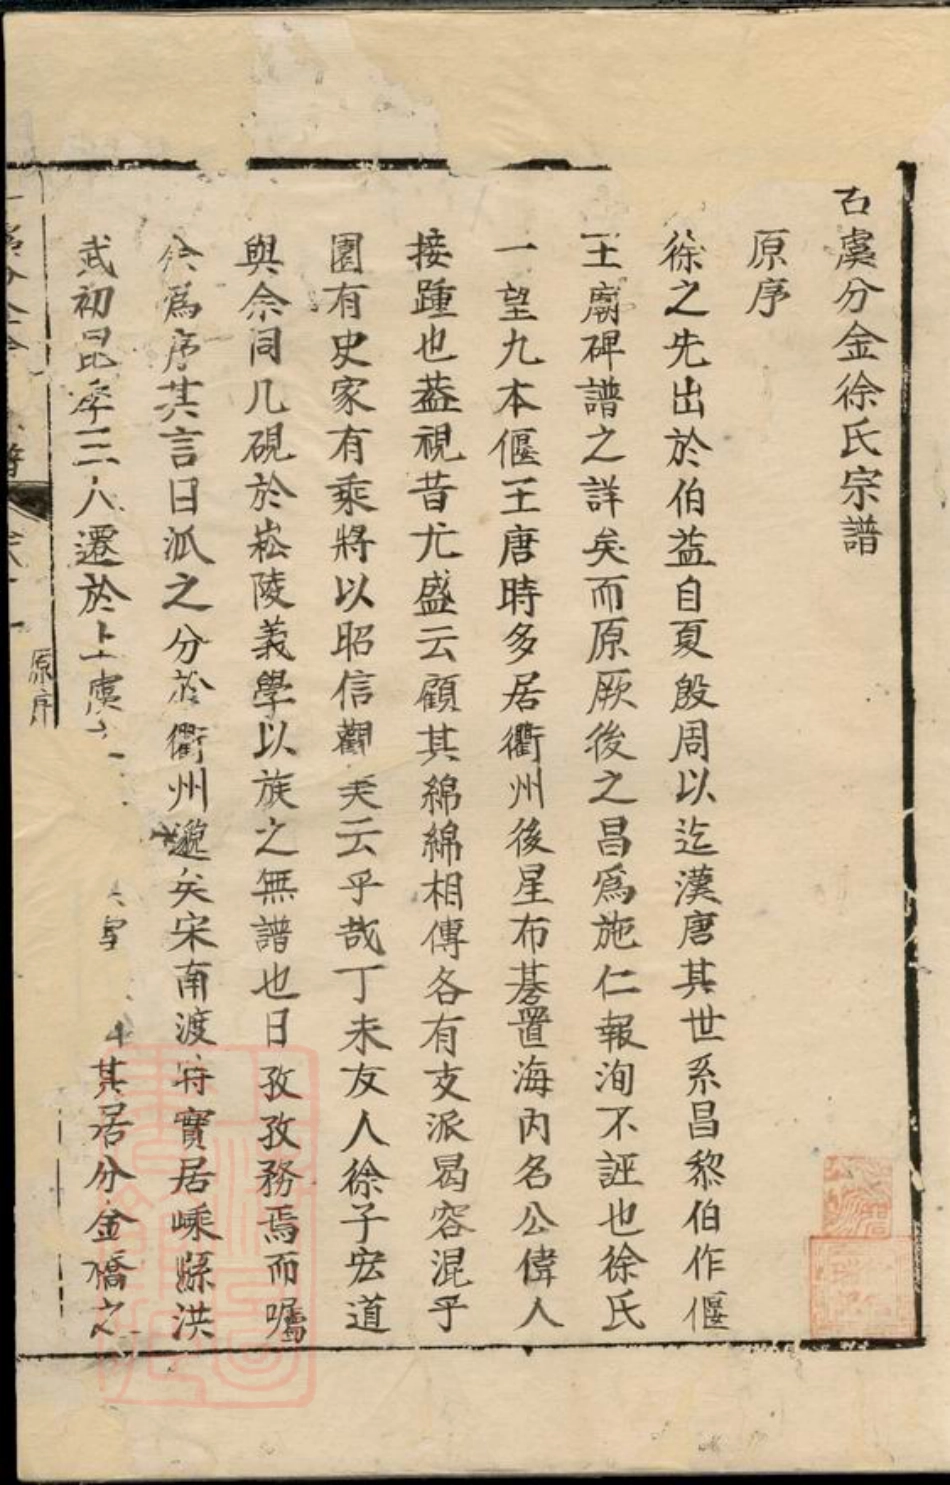 古虞分金徐氏宗譜
原序
徐之先出於伯益自夏殷周以迄漢唐其世系昌黎伯作偃
王廟碑譜之詳矣而原厥後之昌爲施仁報洵不誣也徐氏
一望九本偃王唐時多居衢州後星布碁置海內名公偉人
接踵也葢視昔尤盛云顧其綿綿相傳各有支派曷容混乎
國有史家有乘將以昭信觀美云乎哉丁未友人徐子宏道
與余同几硯於崧陵義學以族之無譜也日孜孜務焉而囑
余爲序其言曰派之分於衢州邈矣宋南渡時實居嵊縣洪
武初昆季三人遷於上虞
其居分金橋之
原序